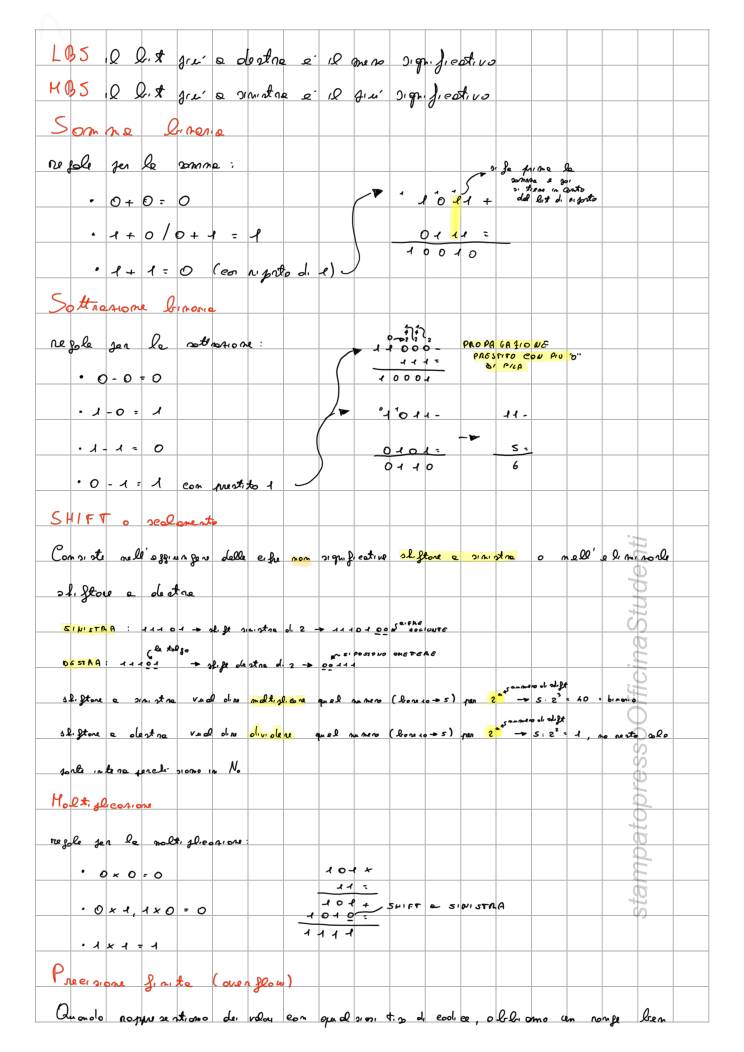 LBS il bit più a destra è il meno significativo
MBS il bit più a sinistra è il più significativo
Somma binaria
regole per la somma :
• 0 + 0 = 0
• 1 + 0 / 0 + 1 = 1
• 1 + 1 = 0 (con riporto di 1)
si fa prima la
somma e poi
si tiene in conto
del bit di riporto
1 0 1 1 +
0 1 1 1 =
1 0 0 1 0
Sottrazione binaria
regole per la sottrazione :
• 0 - 0 = 0
• 1 - 0 = 1
• 1 - 1 = 0
• 0 - 1 = 1 con prestito 1
1 1 0 0 0 -
1 1 1 =
1 0 0 0 1
PROPAGAZIONE
PRESTITO CON PIU "0"
DI FILA
1 0 1 1 -
0 1 0 1 =
0 1 1 0
11 -
5 =
6
SHIFT o scalamento
Consiste nell'aggiungere delle cifre non significative shiftare a sinistra o nell'eliminarle
shiftare a destra
SINISTRA : 1 1 1 0 1 → shift sinistra di 2 → 1 1 1 0 1 0 0 CIFRE AGGIUNTE
DESTRA : 1 1 1 0 1 le tolgo → shift destra di 2 → 0 0 1 1 1 SI POSSONO OMETTERE
shiftare a sinistra vuol dire moltiplicare quel numero (base 10 → 5) per 2 numero di shift → 5 · 2³ = 40 = binario
shiftare a destra vuol dire dividere quel numero (base 10 → 5) per 2 numero di shift → 5 : 2² = 1, no resto solo
parte intera perché siamo in N₀
Moltiplicazione
regole per la moltiplicazione :
• 0 × 0 = 0
• 0 × 1, 1 × 0 = 0
• 1 × 1 = 1
1 0 1 ×
1 1 =
1 0 1 +
1 0 1 0 = SHIFT a SINISTRA
1 1 1 1
Precisione finita (overflow)
Quando rappresentiamo dei valori con qualsiasi tipo di codice, abbiamo un range ben
stampatopressoOfficinaStudenti